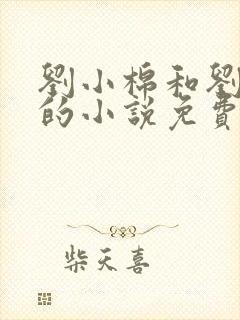 劉小棉和劉
的小說免費
柴天喜